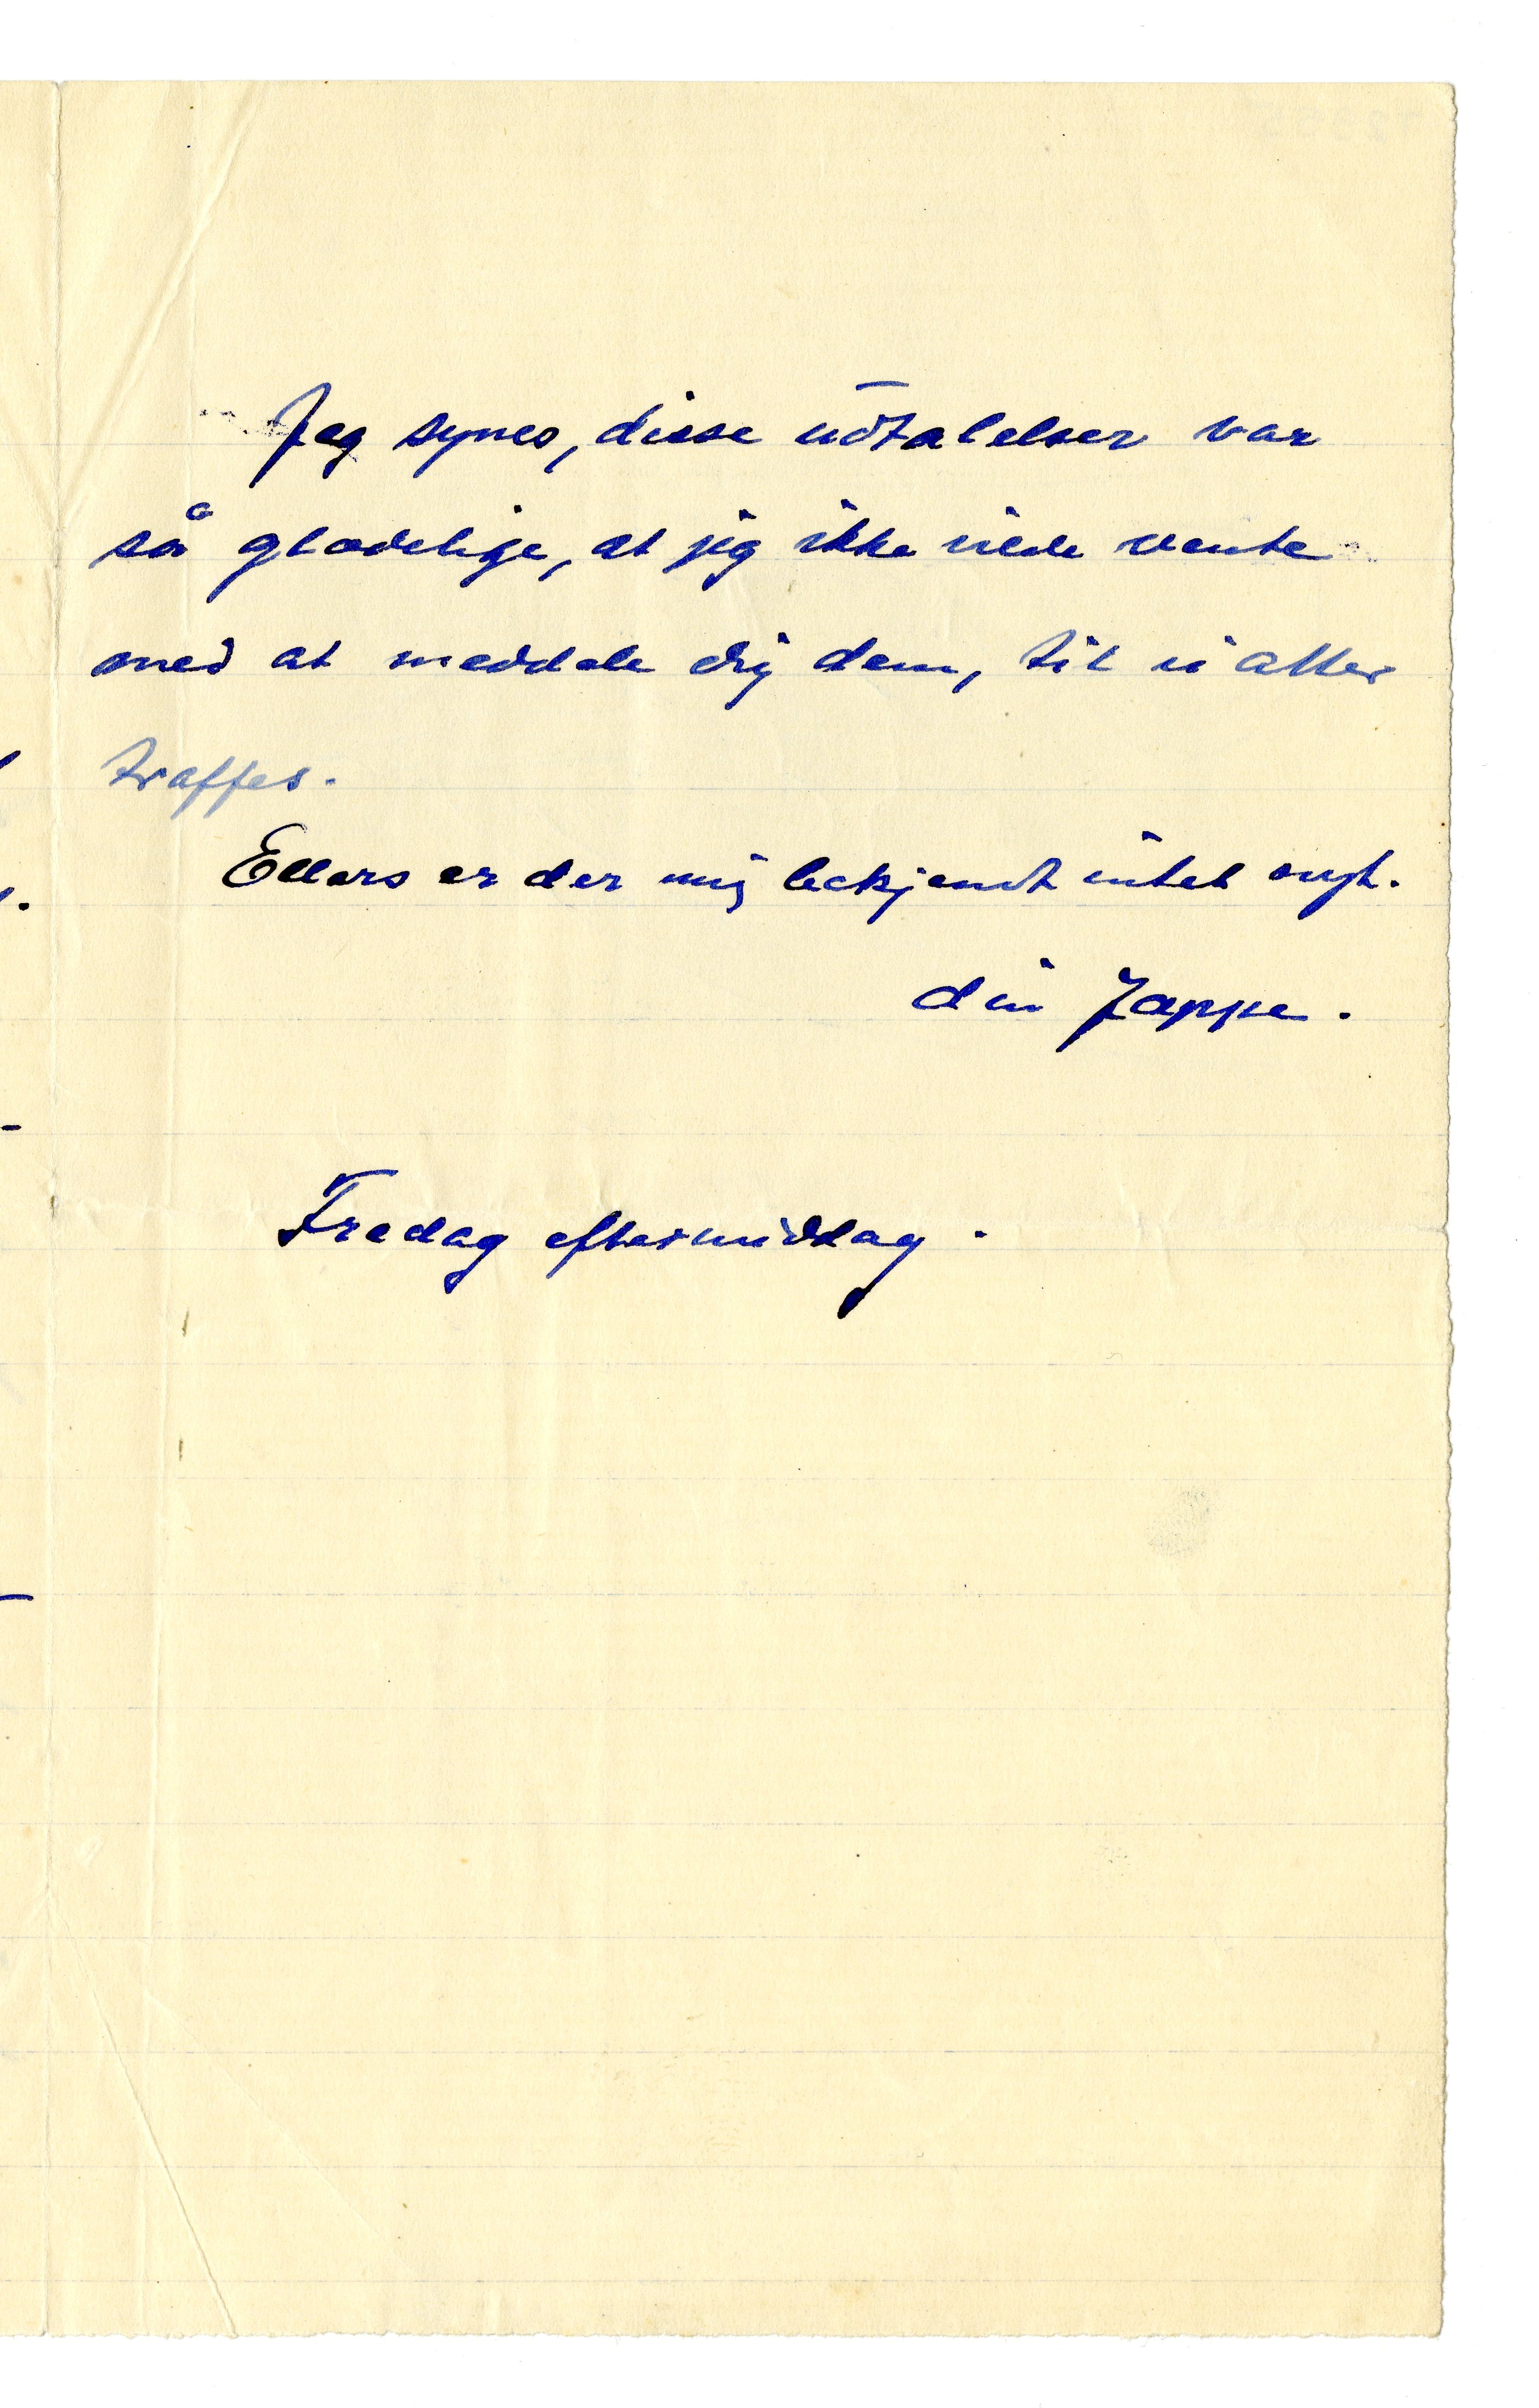 Jeg synes, disse udtalelser var
så glædelige, at jeg ikke vilde vente
med at meddele dig dem, til vi atter
træffes.
Ellers er der mig bekjendt intet nyt.
din Jappe.
Fredag eftermiddag.